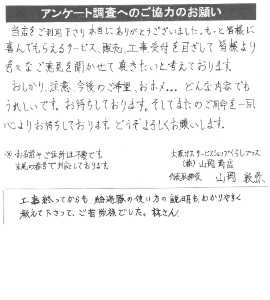 アンケート調査へのご協力のお願い
当店をご利用下さり本日はありがとうございました。もっと皆様に
喜んでもらえるサービス、販売、工事受付を目ざして皆様より
色々なご意見を聞かせて頂きたいと考えております。
おしかり、注意、今後のご希望、おホメ… どんな内容でも
うれしいです。お待ちしております。そしてまたのご用命を一同
心よりお待ちしております。どうぞよろしくお願いします。
※お名前やご住所は不要です
末尾の番号で対応しております
大阪ガスサービスショップ
(株)山岡商店
代表取締役 山岡
工事終ってからも給湯器の使い方の説明もわかりやすく
教えて下さって、ご苦労様でした。